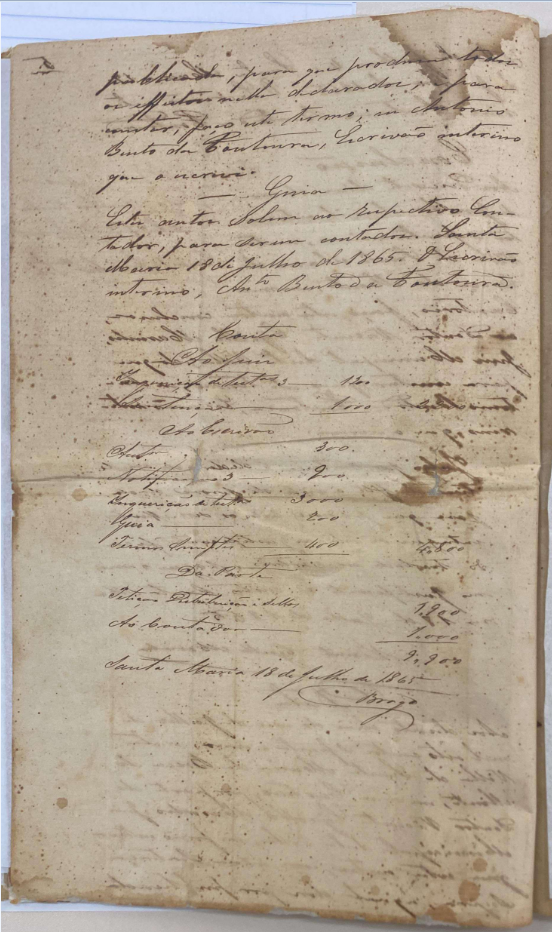 publicada, para que produza todos
os effeitos nella declarados, e para
constar, faço este termo; eu Antonio
Bento da Fontoura, Escrivão interino
que o escrevi.
— Guia —
Estes autos Sobem ao respectivo Con-
tador, para serem contados. Santa
Maria 18 de Julho de 1865. O Escrivão
interino, Antº Bento da Fontoura.
Conta
Ao Juiz
Inquirição de testas 3 —
1000
Ao Escrivão
300.
3 — 900
Inquirição de testas 3000
Guia 200
Termos Simples 400 4.800
Da Parte
Petição
Ao Contador 1.000
9.900
Santa Maria 18 de Julho de 1865
Braga